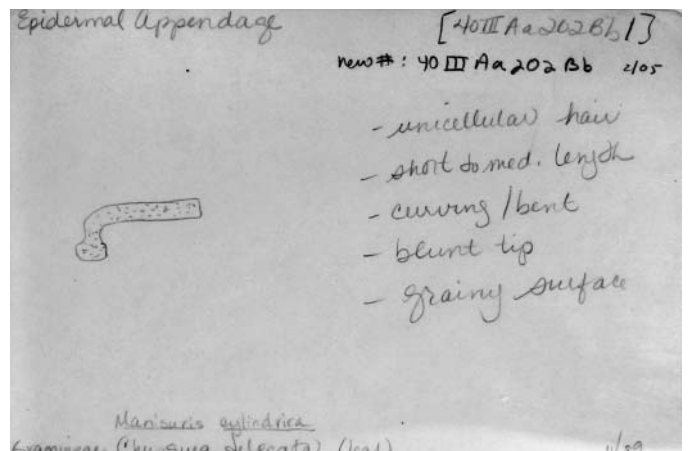 Epidermal Appendage
[40III Aa202Bb1]
new#: 40 III Aa 202 Bb 2/05
- unicellular hair
- short to med. length
- curving/bent
- blunt tip
- grainy surface
Manisuris cylindrica
Gramineae (leaf) 11/89